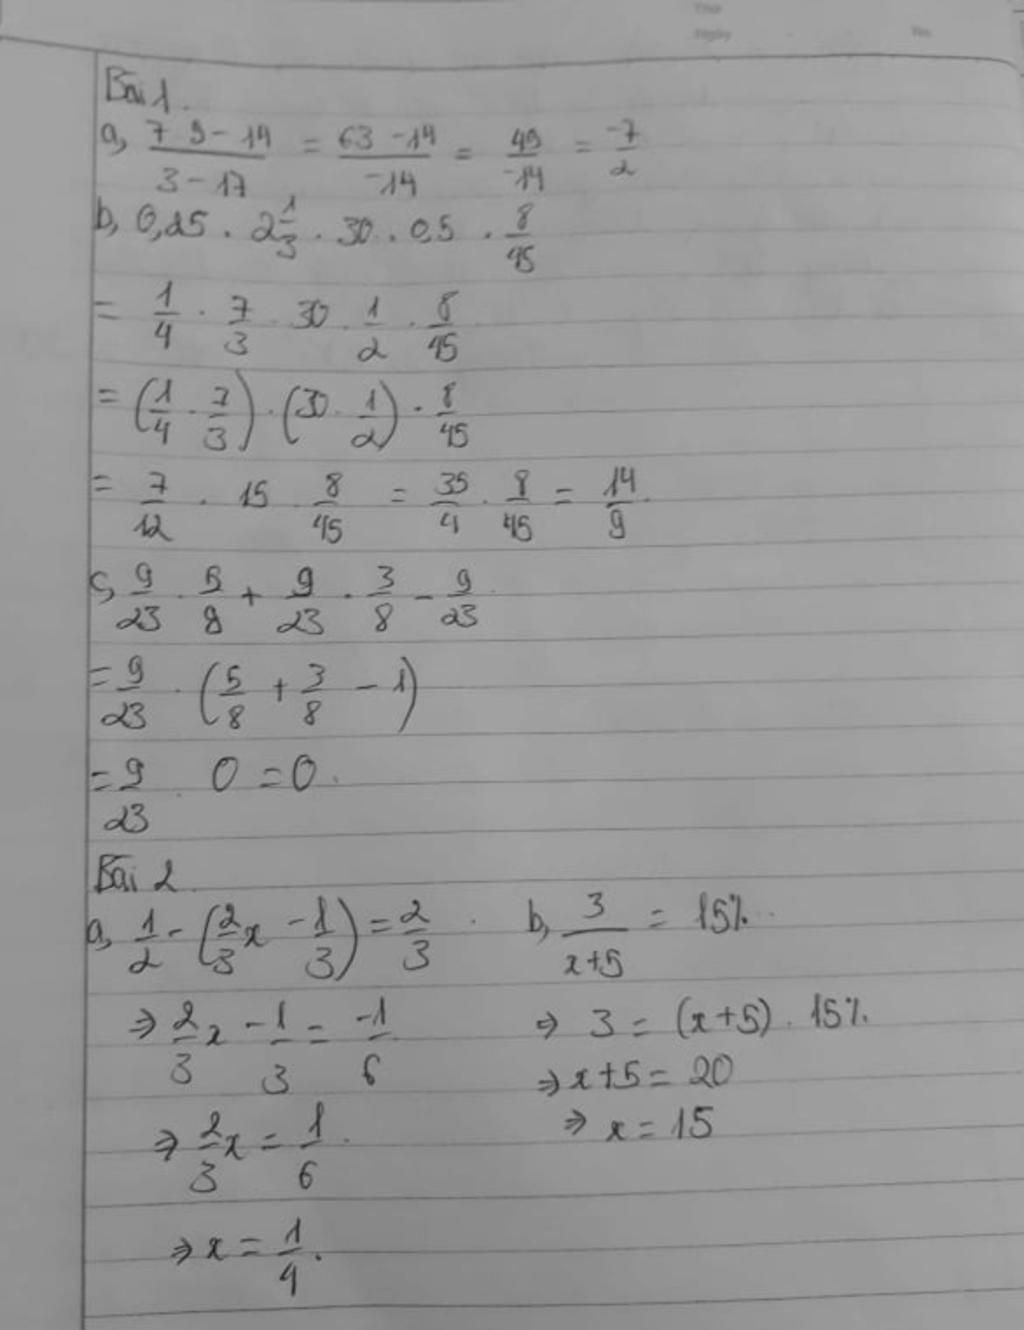 Bài 1.
a, \frac{7 9 - 14}{3 - 17} = \frac{63 - 14}{-14} = \frac{49}{-14} = \frac{-7}{2}
b, 0,25 . 2\frac{1}{3} . 30 . 0,5 . \frac{8}{45}
= \frac{1}{4} . \frac{7}{3} . 30 . \frac{1}{2} . \frac{8}{45}
= (\frac{1}{4} . \frac{7}{3}) . (30 . \frac{1}{2}) . \frac{8}{45}
= \frac{7}{12} . 15 . \frac{8}{45} = \frac{35}{4} . \frac{8}{45} = \frac{14}{9}.
c, \frac{9}{23} . \frac{5}{8} + \frac{9}{23} . \frac{3}{8} - \frac{9}{23}
= \frac{9}{23} . (\frac{5}{8} + \frac{3}{8} - 1)
= \frac{9}{23} . 0 = 0.
Bài 2.
a, \frac{1}{2} - (\frac{2}{3}x - \frac{1}{3}) = \frac{2}{3}
⇒ \frac{2}{3}x - \frac{1}{3} = \frac{-1}{6}
⇒ \frac{2}{3}x = \frac{1}{6}.
⇒ x = \frac{1}{4}.
b, \frac{3}{x+5} = 15%.
⇒ 3 = (x+5) . 15%.
⇒ x+5 = 20
⇒ x = 15